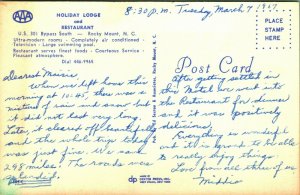 8:30 p.m. Tuesday, March 7, 19
HOLIDAY LODGE
and
RESTAURANT
U.S. 301 Bypass South — Rocky Mount, N. C.
Ultra-modern rooms - Completely air conditioned -
Television - Large swimming pool.
Restaurant serves finest foods - Courteous Service -
Pleasant atmosphere.
Dial 446-
PLACE
STAMP
HERE
Post Card
Dearest
When we left home this
morning at 10:45, there was a
mixture of rain and snow but it
did not last very long.
Later, it cleared off beautifully
and the whole trip today
was just fine. We made
248 miles. The roads were
splendid.
After getting settled in
this Motel we went into
the Restaurant for dinner
and it was positively
delicious.
Everything is wonderful
and it is grand to be able
to really enjoy things.
Love from all three of us